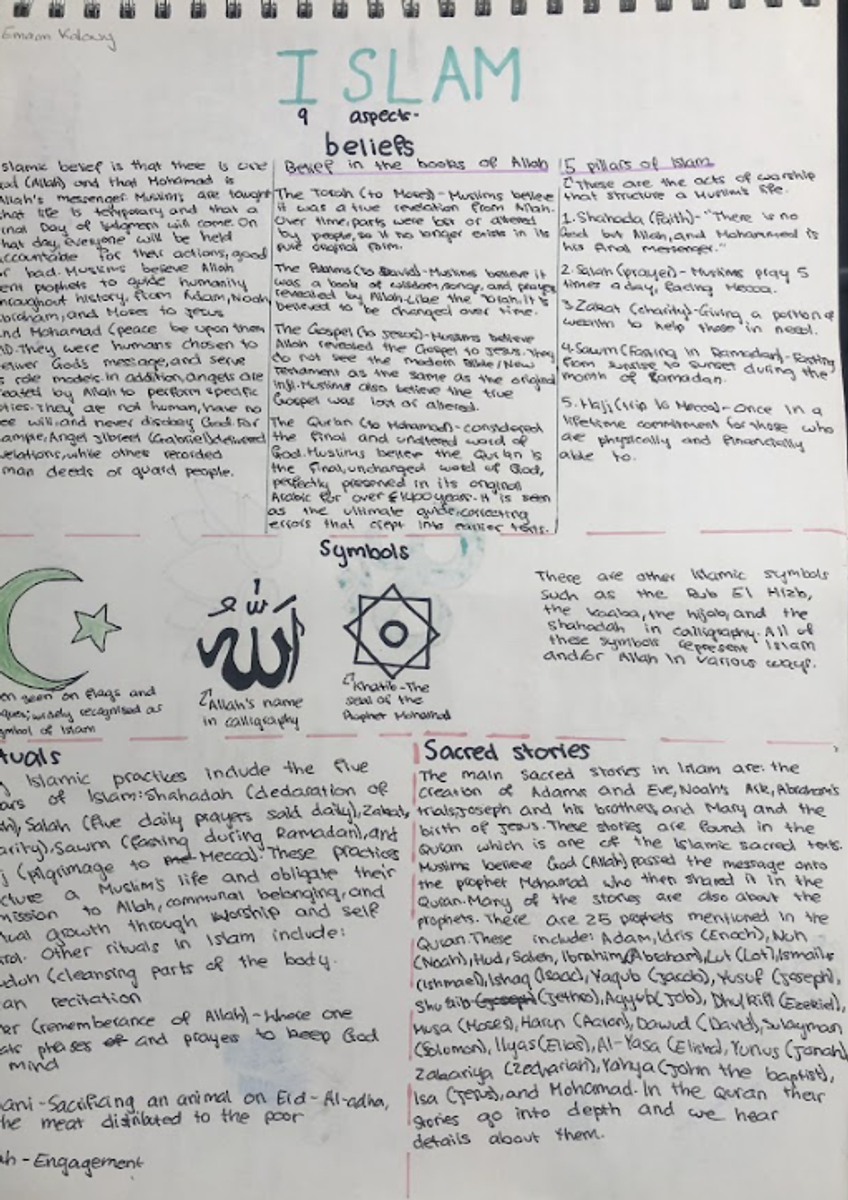 Emaan
ISLAM
9 aspects-
beliefs
slamic belief is that there is one
od (Allah) and that Mohamad is
llah's messenger. Muslims are taught
hat life is temporary and that a
inal Day of Judgment will come. On
hat day, everyone will be held
ccountable for their actions, good
r bad. Muslims believe Allah
ent prophets to guide humanity
hroughout history, from Adam, Noah,
braham, and Moses to Jesus
nd Mohamad (peace be upon them
ll). They were humans chosen to
eliver God's message, and serve
s role models. in addition, angels are
eated by Allah to perform specific
ties. They are not human, have no
ee will and never disobey God. For
ample, Angel Jibreel (Gabriel) delivered
velations, while others recorded
man deeds or guard people.
Belief in the books of Allah
The Torah (to Moses) - Muslims believe
it was a true revelation from Allah.
Over time, parts were lost or altered
by people, so it no longer exists in its
pure original form.
The Psalms (to David) - Muslims believe it
was a book of wisdom, songs, and prayers
revealed by Allah. Like the Torah, it is
believed to be changed over time.
The Gospel (to Jesus) - Muslims believe
Allah revealed the Gospel to Jesus. They
do not see the modern Bible/New
Testament as the same as the original
Injil. Muslims also believe the true
Gospel was lost or altered.
The Qur'an (to Mohamad) - considered
the final and unaltered word of
God. Muslims believe the Qur'an is
the final, unchanged word of God,
perfectly preserved in its original
Arabic for over 1400 years. It is seen
as the ultimate guide, correcting
errors that crept into earlier texts.
5 pillars of Islam
These are the acts of worship
that structure a Muslim's life.
1. Shahada (faith) - "There is no
God but Allah, and Mohammed is
his final messenger."
2. Salah (prayer) - Muslims pray 5
times a day, facing Mecca.
3. Zakat (charity) - Giving a portion of
wealth to help those in need.
4. Sawm (Fasting in Ramadan) - Fasting
from sunrise to sunset during the
month of Ramadan.
5. Hajj (trip to Mecca) - Once in a
lifetime commitment for those who
are physically and financially
able to.
Symbols
الله
en seen on flags and
ques; widely recognised as
ymbol of Islam
Allah's name
in calligraphy
Khatib - The
seal of the
Prophet Mohamad
There are other Islamic symbols
such as the Rub El Hizb,
the kaaba, the hijab, and the
shahadah in calligraphy. All of
these symbols represent Islam
and/or Allah in various ways.
tuals
Islamic practices include the five
ars of Islam: Shahadah (declaration of
h), Salah (five daily prayers said daily), Zakat,
arity), Sawm (fasting during Ramadan), and
j (pilgrimage to Mecca). These practices
cture a Muslim's life and obligate their
mission to Allah, communal belonging, and
tual growth through worship and self
rol. Other rituals in Islam include:
udoh (cleansing parts of the body.
an recitation
er (rememberance of Allah) - Where one
ats phases of and prayers to keep God
mind
ani - Sacrificing an animal on Eid-Al-adha,
he meat distributed to the poor
ah - Engagement
Sacred stories
The main sacred stories in Islam are: the
creation of Adams and Eve, Noah's Ark, Abraham's
trials, Joseph and his brothers, and Mary and the
birth of Jesus. These stories are found in the
Quran which is one of the Islamic sacred texts.
Muslims believe God (Allah) passed the message onto
the prophet Mohamad who then shared it in the
Quran. Many of the stories are also about the
prophets. There are 25 prophets mentioned in the
Quran. These include: Adam, Idris (Enoch), Nuh
(Noah), Hud, Saleh, Ibrahim (Abraham), Lut (Lot), Ismail
(Ishmael), Ishaq (Isaac), Yaqub (Jacob), Yusuf (Joseph),
Shu'aib (Jethro), Ayyub (Job), Dhulkifl (Ezekiel),
Musa (Moses), Harun (Aaron), Dawud (David), Sulayman
(Solomon), Ilyas (Elias), Al-Yasa (Elisha), Yunus (Jonah)
Zakariya (Zechariah), Yahya (John the baptist),
Isa (Jesus), and Mohamad. In the Quran their
stories go into depth and we hear
details about them.